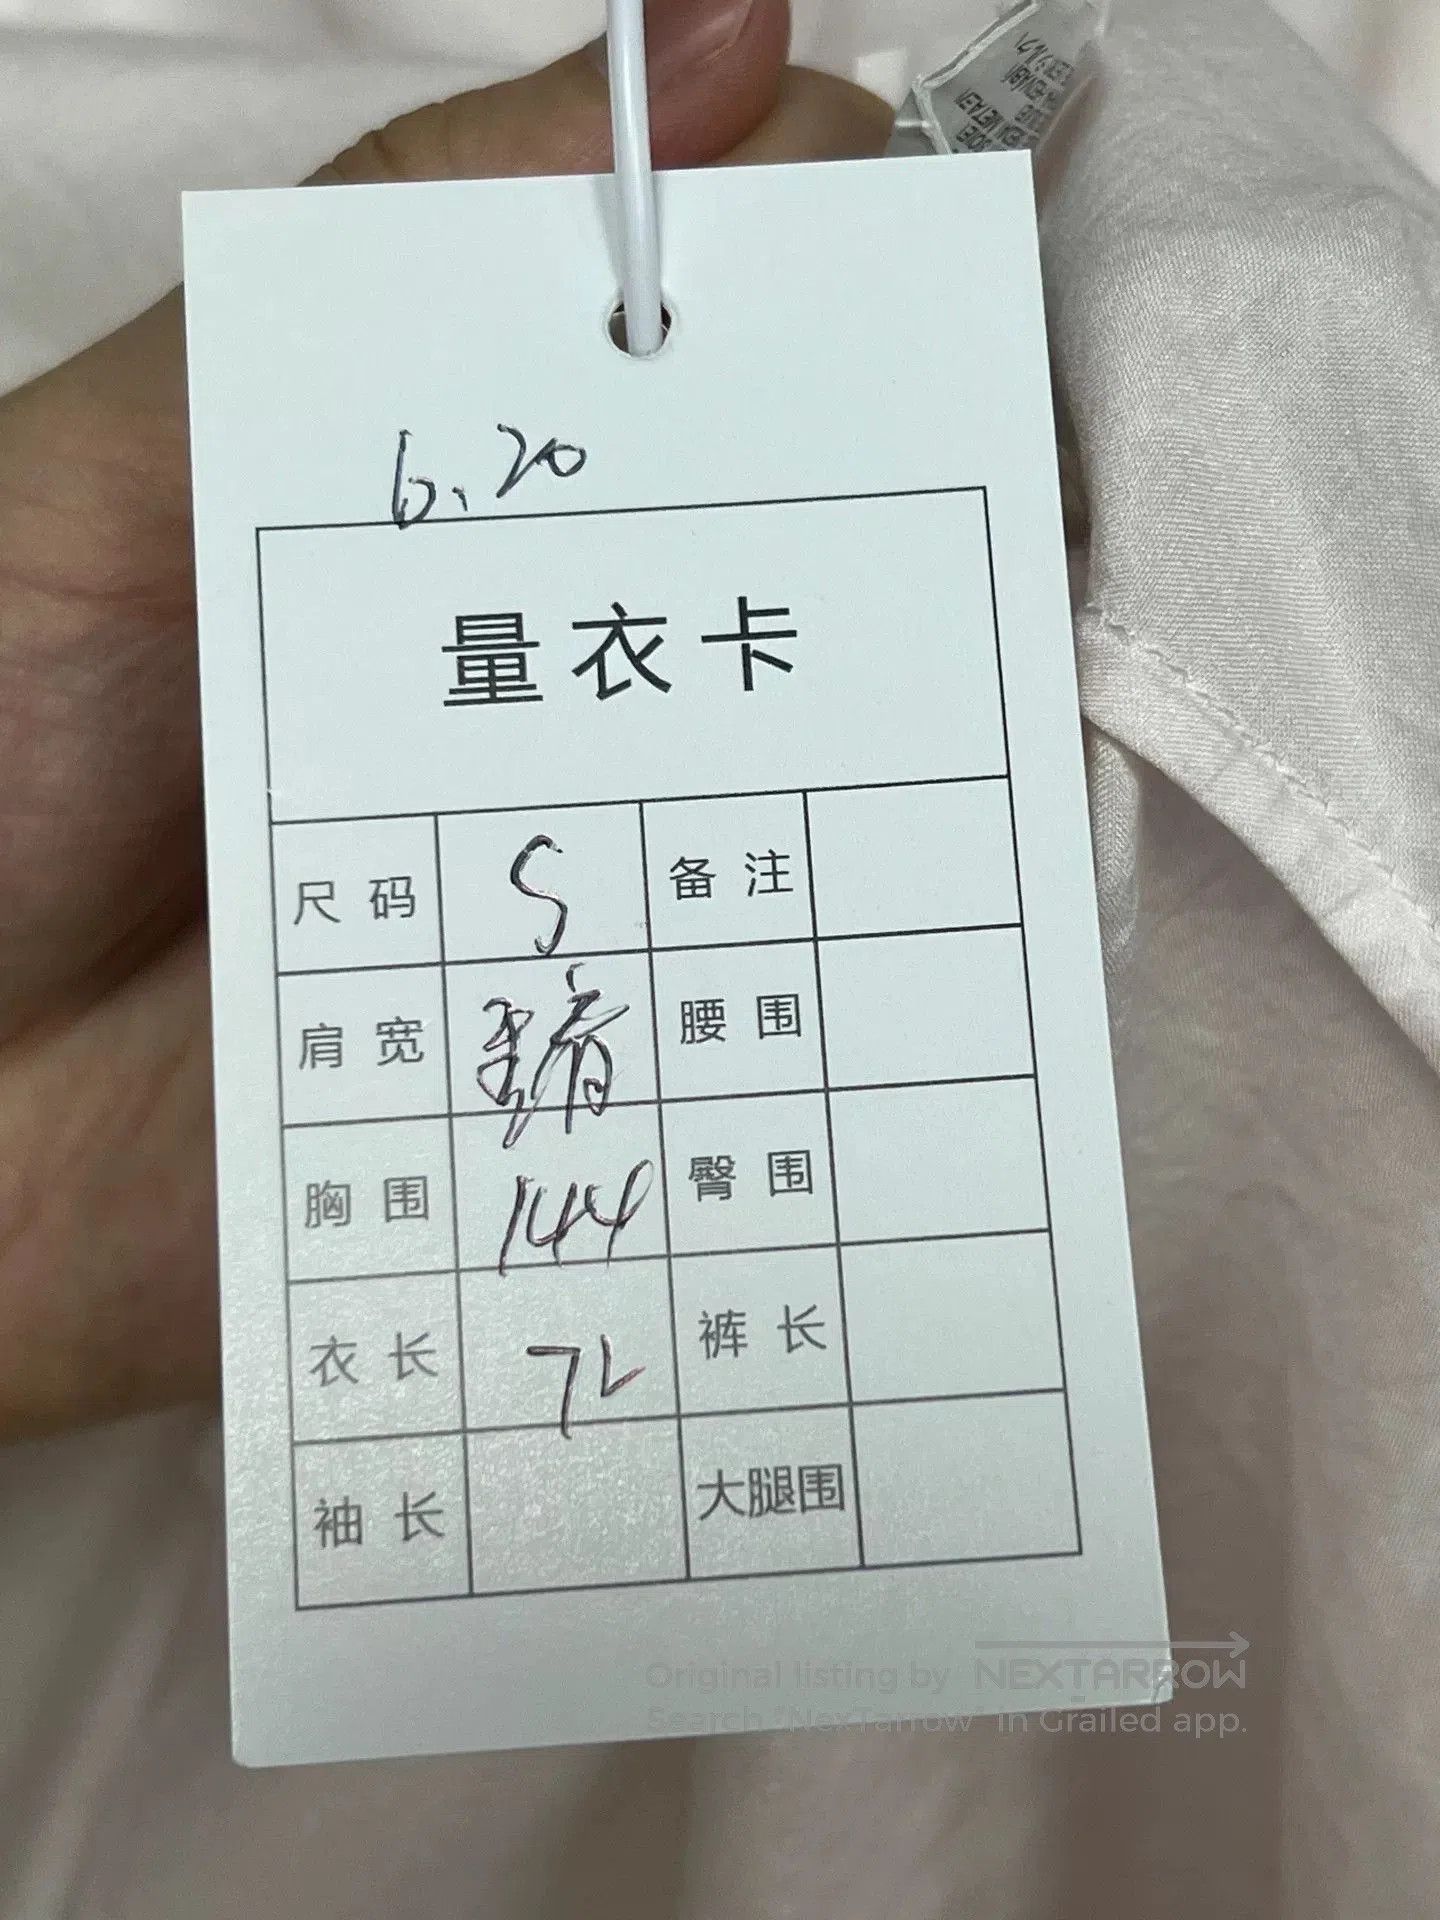 6.20
量衣卡
尺码 S 备注
肩宽 垂肩 腰围
胸围 144 臀围
衣长 72 裤长
袖长 大腿围
Original listing by NEXTARROW
Search "NexTarrow" in Grailed app.